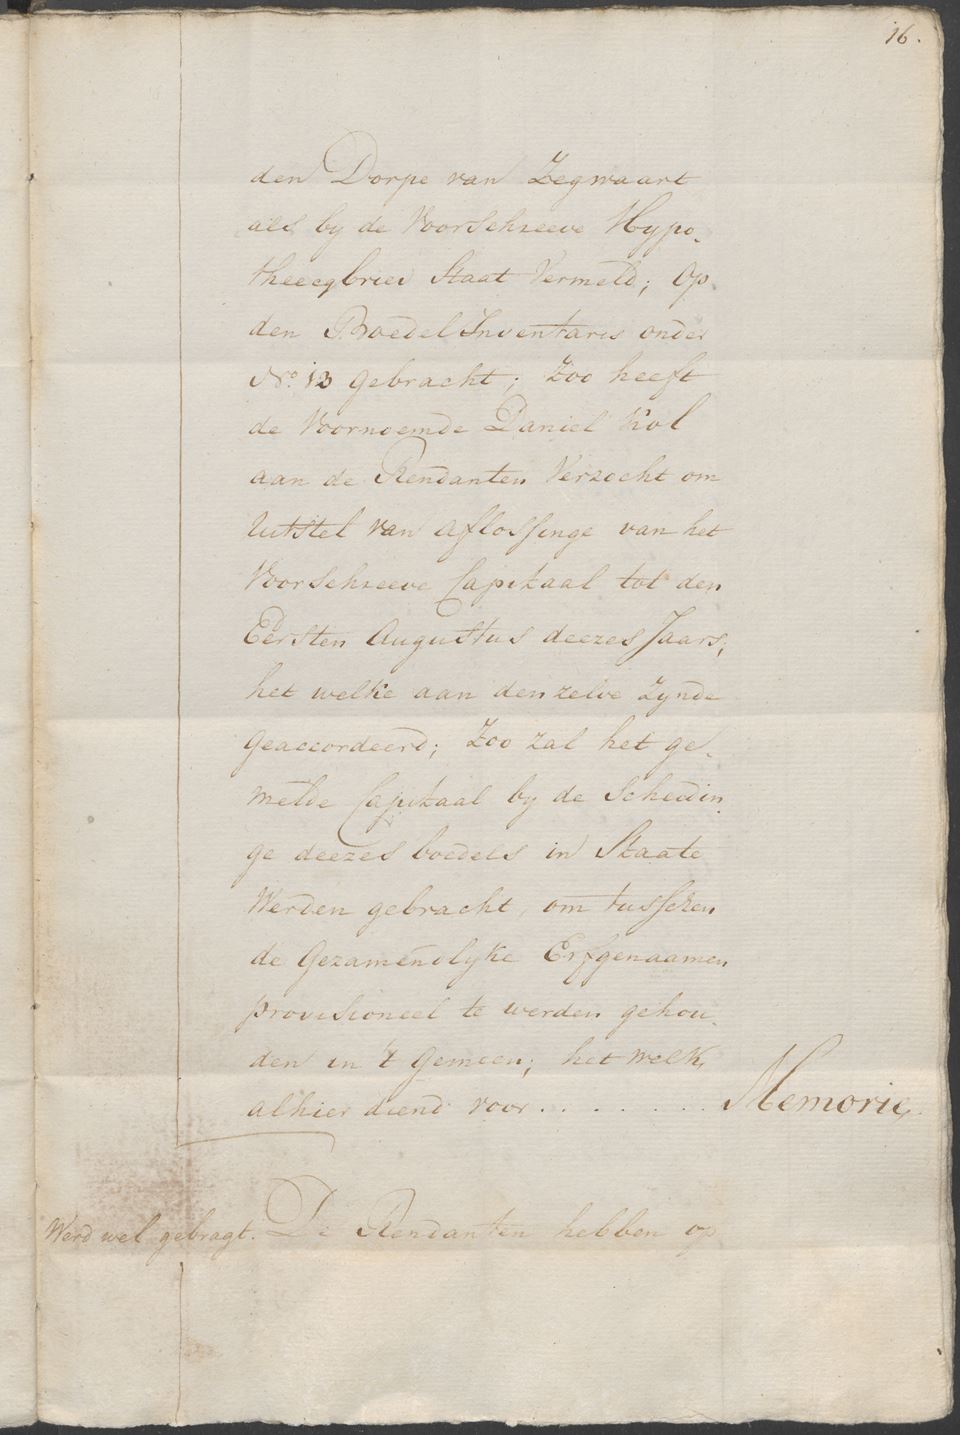 16.
den Dorpe van Zegwaart
als by de Voorschreeve Hypo„
theecqbrief Staat Vermeld; Op
den Boedel Inventaris onder
No. 13 gebracht; Zoo heeft
de Voornoemde Daniel Kol
aan de Rendanten Verzocht om
Uitstel van aflossinge van het
Voorschreeve Capitaal tot den
Eersten Augustus deezes Jaars;
het welke aan denzelve zynde
geaccordeerd; Zoo zal het ge„
melde Capitaal by de Scheidin„
ge deezes boedels in Staate
Werden gebracht, om tusschen
de Gezamendlyke Erfgenaamen
provisioneel te werden gehou„
den in 't Gemeen; het welk
alhier diend voor . . . . . . . . Memorie.
Werd wel gebragt. De Rendanten hebben op